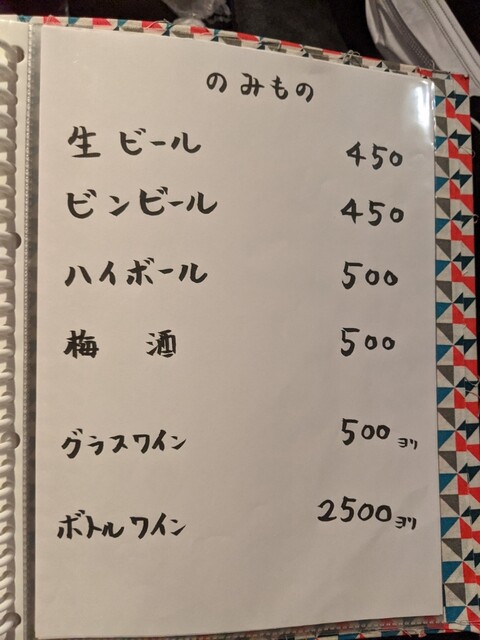 のみもの
生ビール 450
ビンビール 450
ハイボール 500
梅酒 500
グラスワイン 500ヨリ
ボトルワイン 2500ヨリ